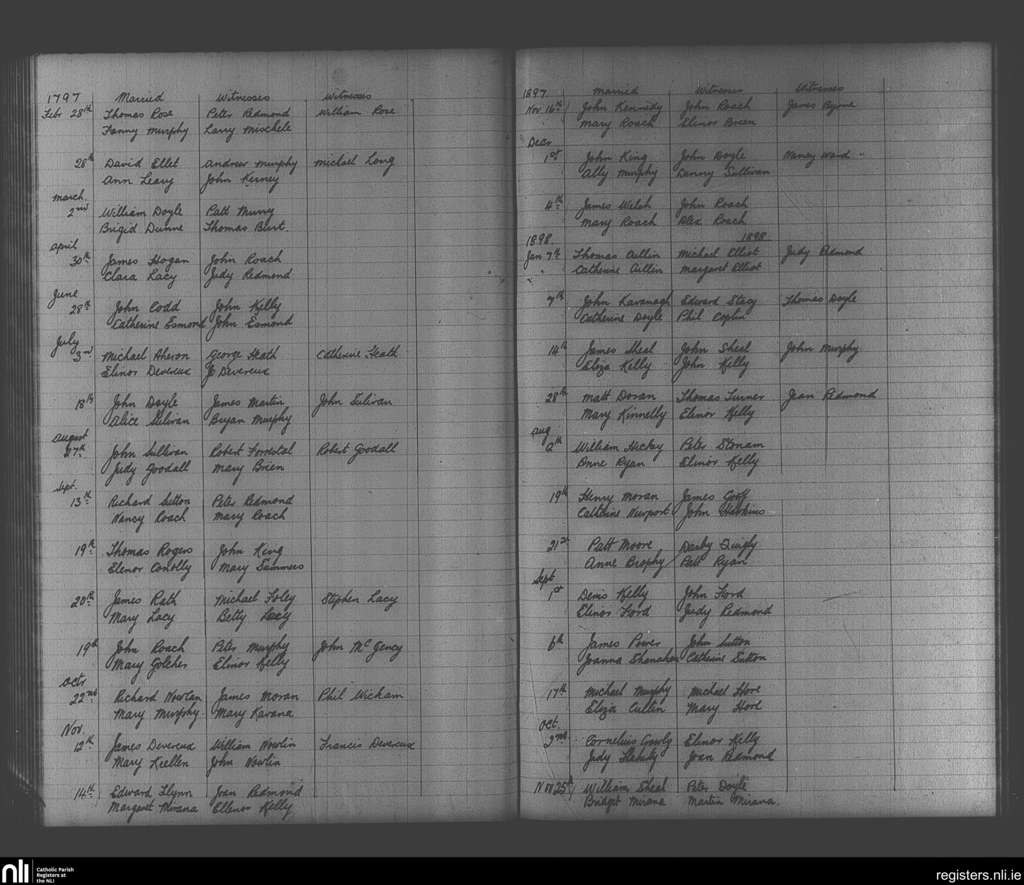 1797 Married Witnesses Witnesses
Feb 28th Thomas Rose Peter Redmond William Rose
Fanny Murphy Larry Mischele
28th David Ellet Andrew Murphy Michael Long
Ann Leary John Kerney
March
2nd William Doyle Patt Murry
Brigid Dunne Thomas Blut
April
30th James Hogan John Roach
Clara Lacy Judy Redmond
June
28th John Codd John Kelly
Catherine Esmond John Esmond
July
3rd Michael Aheron George Heath Catherine Heath
Elinor Devereux Devereux
18th John Doyle James Martin John Sulivan
Alice Sulivan Bryan Murphy
August
27th John Sullivan Robert Forrestal Robert Goodall
Judy Goodall Mary Brien
Sept.
13th Richard Sutton Peter Redmond
Nancy Roach Mary Roach
19th Thomas Rogers John King
Elenor Conolly Mary Summers
20th James Rath Michael Foley Stephen Lacy
Mary Lacy Betty Lacy
19th John Roach Peter Murphy John McGency
Mary Golcher Elinor Kelly
Octr
22nd Richard Nowlan James Moran Phil Wickam
Mary Murphy Mary Kavana
Nov.
12th James Devereux William Nowlin Francis Devereux
Mary Kuellen John Nowlin
14th Edward Flynn Joan Redmond
Margaret Mirana Ellenor Kelly
1897 Married Witnesses Witnesses
Nov 16th John Kennedy John Roach James Byrne
Mary Roach Elinor Breen
Decr
1st John King John Doyle Nancy Ward
Ally Murphy Danny Sullivan
4th James Welsh John Roach
Mary Roach Alex Roach
1898. 1898
Jan 7th Thomas Cullin Michael Elliot Judy Redmond
Catherine Cullin Margaret Elliot
7th John Kavanagh Edward Stacy Thomas Doyle
Catherine Doyle Phil Coplin
14th James Sheal John Sheal John Murphy
Eliza Kelly John Kelly
28th Matt Doran Thomas Turner Joan Redmond
Mary Kinnelly Elenor Kelly
Aug
2th William Hickey Peter Stonam
Anne Ryan Elinor Kelly
19th Henry Moran James Goff
Catherine Newport John Harkins
21st Patt Moore Darby Quigly
Anne Brophy Patt Ryan
Sept
1st Denis Kelly John Ford
Elinor Ford Judy Redmond
6th James Power John Sutton
Joanna Shanahan Catherine Sutton
17th Michael Murphy Michael Hore
Eliza Cullin Mary Hore
Oct.
2nd Cornelius Crowly Elinor Kelly
Judy Flahety Joan Redmond
Nov 25th William Sheal Peter Doyle
Bridget Mirana Martin Mirana.
nli Catholic Parish
Registers at
the NLI
registers.nli.ie